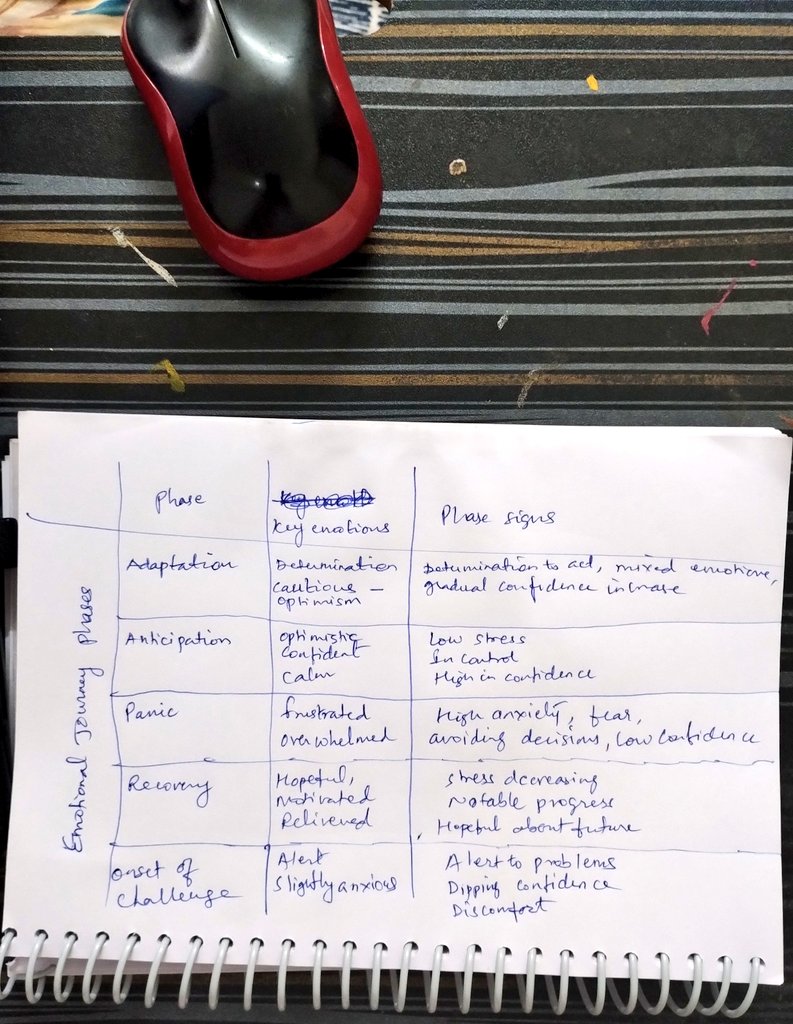 Emotional Journey Phases
Phase
Key emotions
Phase signs
Adaptation
Determination
cautious -
optimism
Determination to act, mixed emotions,
gradual confidence increase
Anticipation
optimistic
Confident
Calm
Low stress
In control
High in confidence
Panic
frustrated
overwhelmed
High anxiety, fear,
avoiding decisions, low confidence
Recovery
Hopeful,
Motivated
Relivened
Stress decreasing
Notable progress
Hopeful about future
onset of
challenge
Alert
Slightly anxious
Alert to problems
Dipping confidence
Discomfort